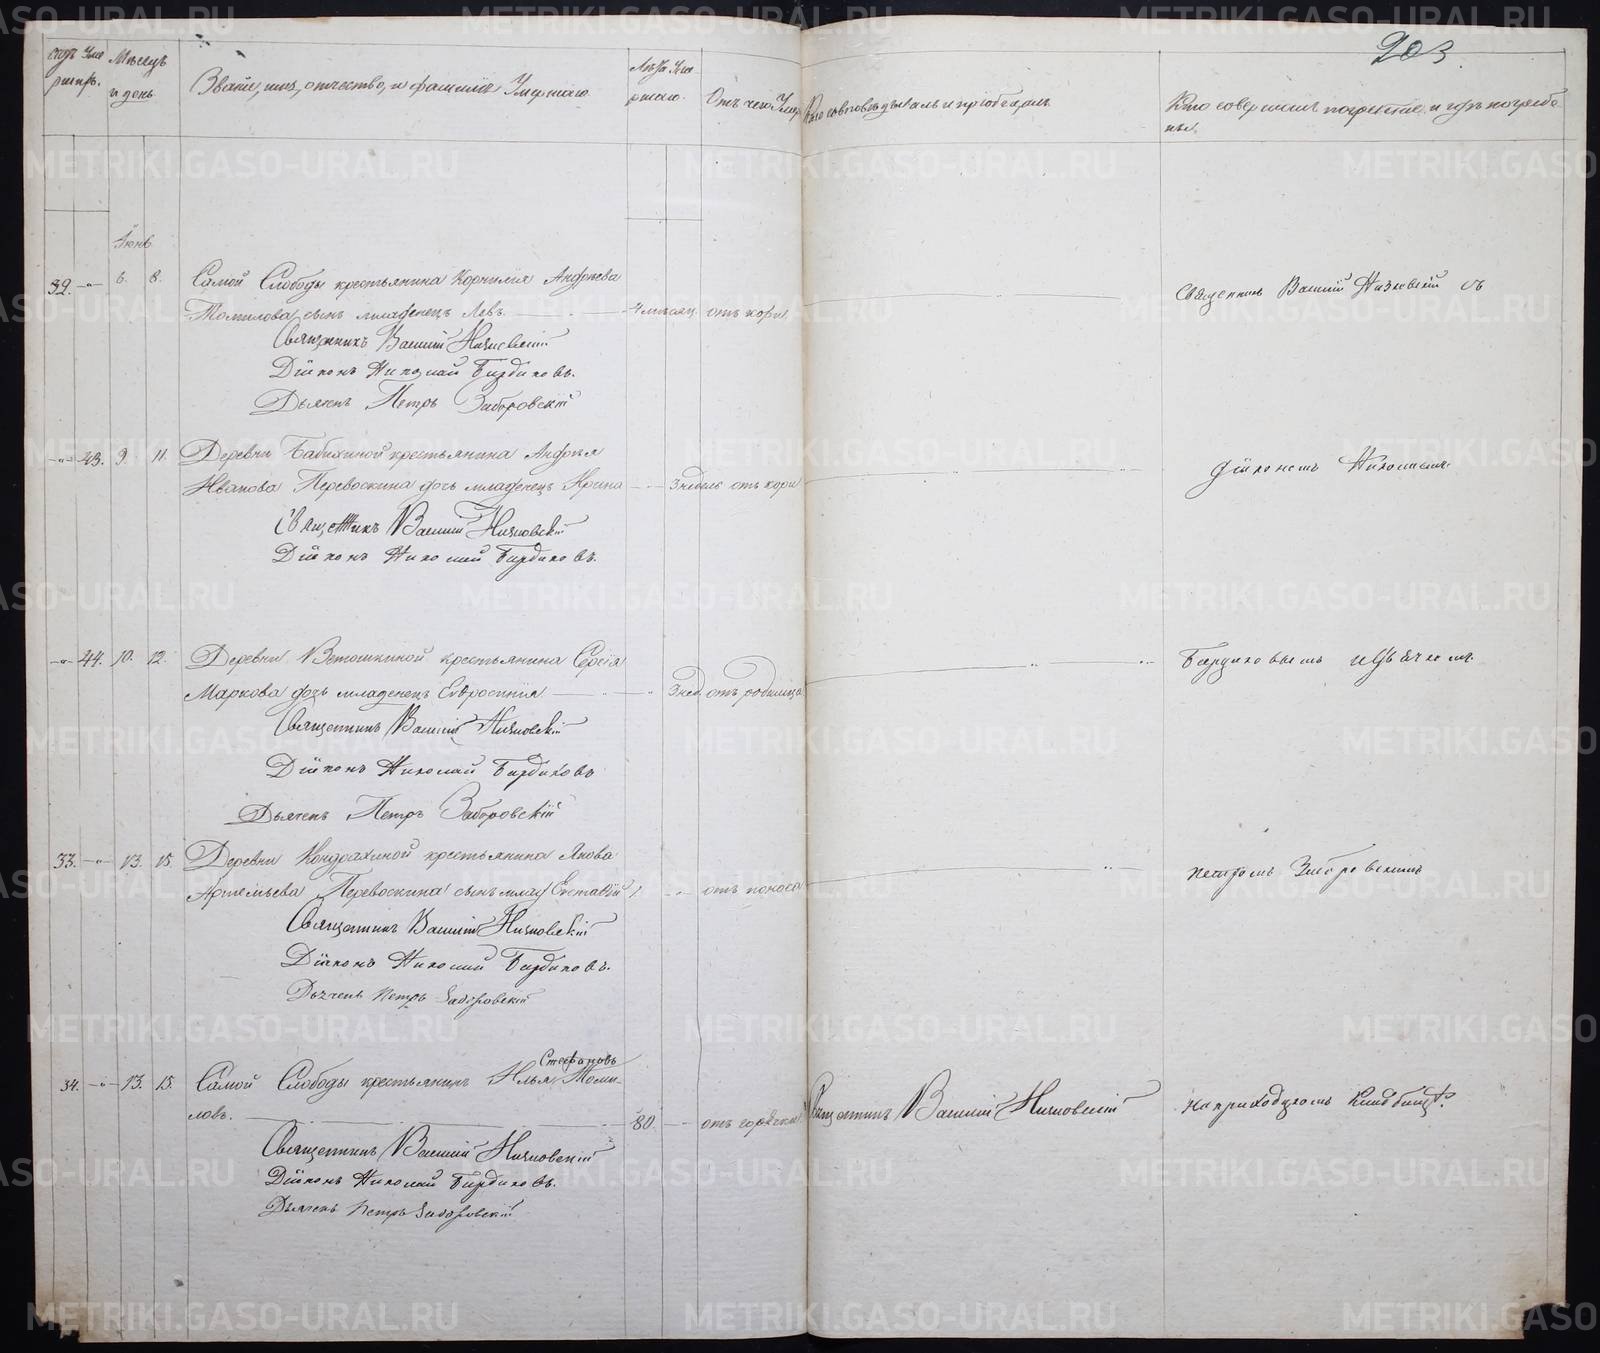 203.
Счетъ Умершихъ.
Мѣсяцъ и день.
Званіе, имя, отчество, и фамилія Умершаго.
Лѣта Умершаго.
Отъ чего Умеръ
Кто исповѣдывалъ и пріобщалъ
Кто совершилъ погребеніе и гдѣ погребены.
Іюнь
32. 6. 8. Самой Слободы крестьянина Корнилія Андреева
Томилова сынъ младенецъ Левъ. 4 мѣсяц. отъ кори
Священникъ Василій
Діаконъ Николай Бирдиковъ.
Дьячекъ Петръ Заборовскій
Священникъ Василій съ
43. 9. 11. Деревни Бабихиной крестьянина Андрея
Иванова Перевоскина дочь младенецъ Ирина 3 недѣль отъ кори
Священникъ Василій
Діаконъ Николай Бирдиковъ.
Діакономъ Николаемъ
44. 10. 12. Деревни Ветошкиной крестьянина Сергія
Маркова дочь младенецъ Евфросинія 3 нед. отъ родимца
Священникъ Василій
Діаконъ Николай Бирдиковъ
Дьячекъ Петръ Заборовскій
Бирдиковымъ и Дьячкомъ
33. 13. 15. Деревни Кондрахиной крестьянина Якова
Артемьева Перевоскина сынъ млад. 1. отъ поноса
Священникъ Василій
Діаконъ Николай Бирдиковъ.
Дьячекъ Петръ Заборовскій
Петромъ Заборовскимъ
Стефановъ
34. 13. 15. Самой Слободы крестьянинъ Илья Томи-
ловъ. 80. отъ горячки
Священникъ Василій
Діаконъ Николай Бирдиковъ.
Дьячекъ Петръ Заборовскій
Священникъ Василій
на приходскомъ кладбищѣ.
METRIKI.GASO-URAL.RU